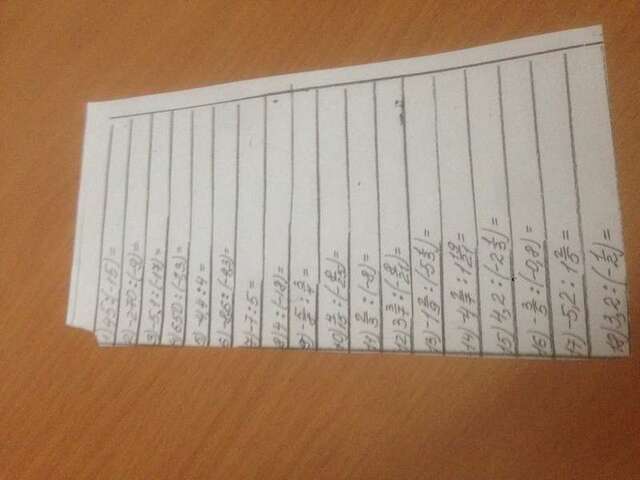 1) 45:(-15)=
2) -270:(-9)=
3) -5,1:(-17)=
4) 650:(-2,3)=
5) -4,4:4=
6) -8,6:(-4,3)=
7) -7:5=
8) 4:(-18)=
9) -5/8:3/4=
10) 4/15:(-8/25)=
11) 2/3:(-8)=
12) 3 3/7:(-8/21)=
13) -1 2/9:(-5 1/3)=
14) -4 2/7:1 19/21=
15) 4,2:(-2 1/3)=
16) -3/5:(-0,8)=
17) -5,2:1 2/5=
18) 3,2:(-1/2)=